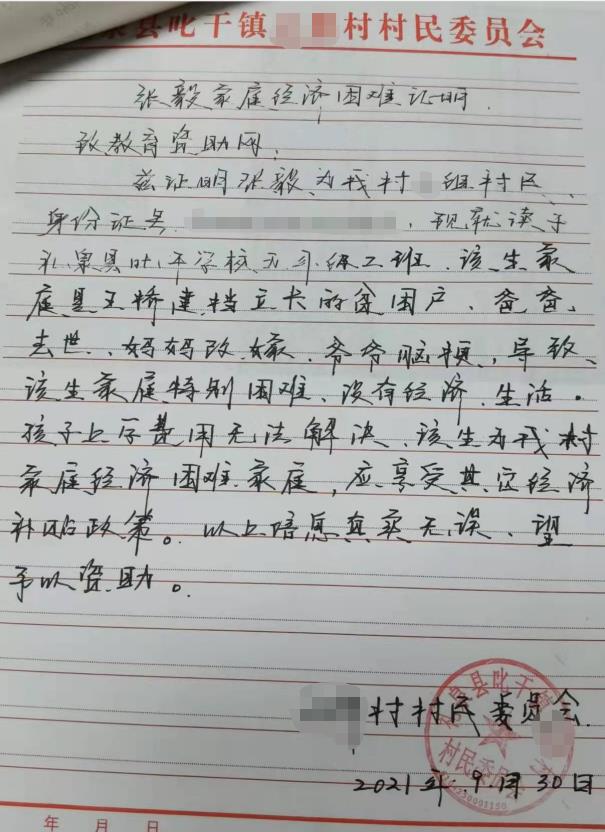 泉县叱干镇 村村民委员会
张毅家庭经济困难证明
致教育资助网:
兹证明张毅为我村 组村民、
身份证号 ,现就读于
礼泉县叱干学校五年级二班.该生家
庭是 建档立卡的贫困户、爸爸、
去世、妈妈改嫁、爷爷脑梗、导致、
该生家庭特别困难、没有经济、生活。
孩子上学费用无法解决、该生为我村
家庭经济困难家庭,应享受其它经济
补贴政策。以上信息真实无误、望
予以资助。
村村民委员会
2021年.9月30日
泉县叱干镇
村民委员会
年 月 日